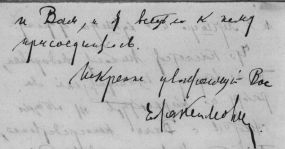 и Вам, и я всецело к нему
присоединяюсь.
Искренне уважающий Вас